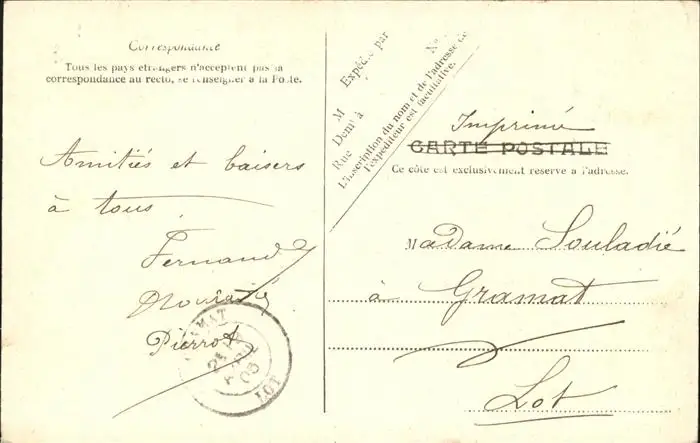 Correspondance
Tous les pays étrangers n'acceptent pas la
correspondance au recto, se renseigner à la Poste.
Amitiés et baisers
à tous
Fernand
Pierrot
GRAMAT
05
LOT
Expédié par
M
N°
Demt à
Rue
L'inscription du nom et de l'adresse de
l'expéditeur est facultative.
Imprimé
CARTE POSTALE
Ce côté est exclusivement réservé à l'adresse.
Madame Souladié
à Gramat
Lot